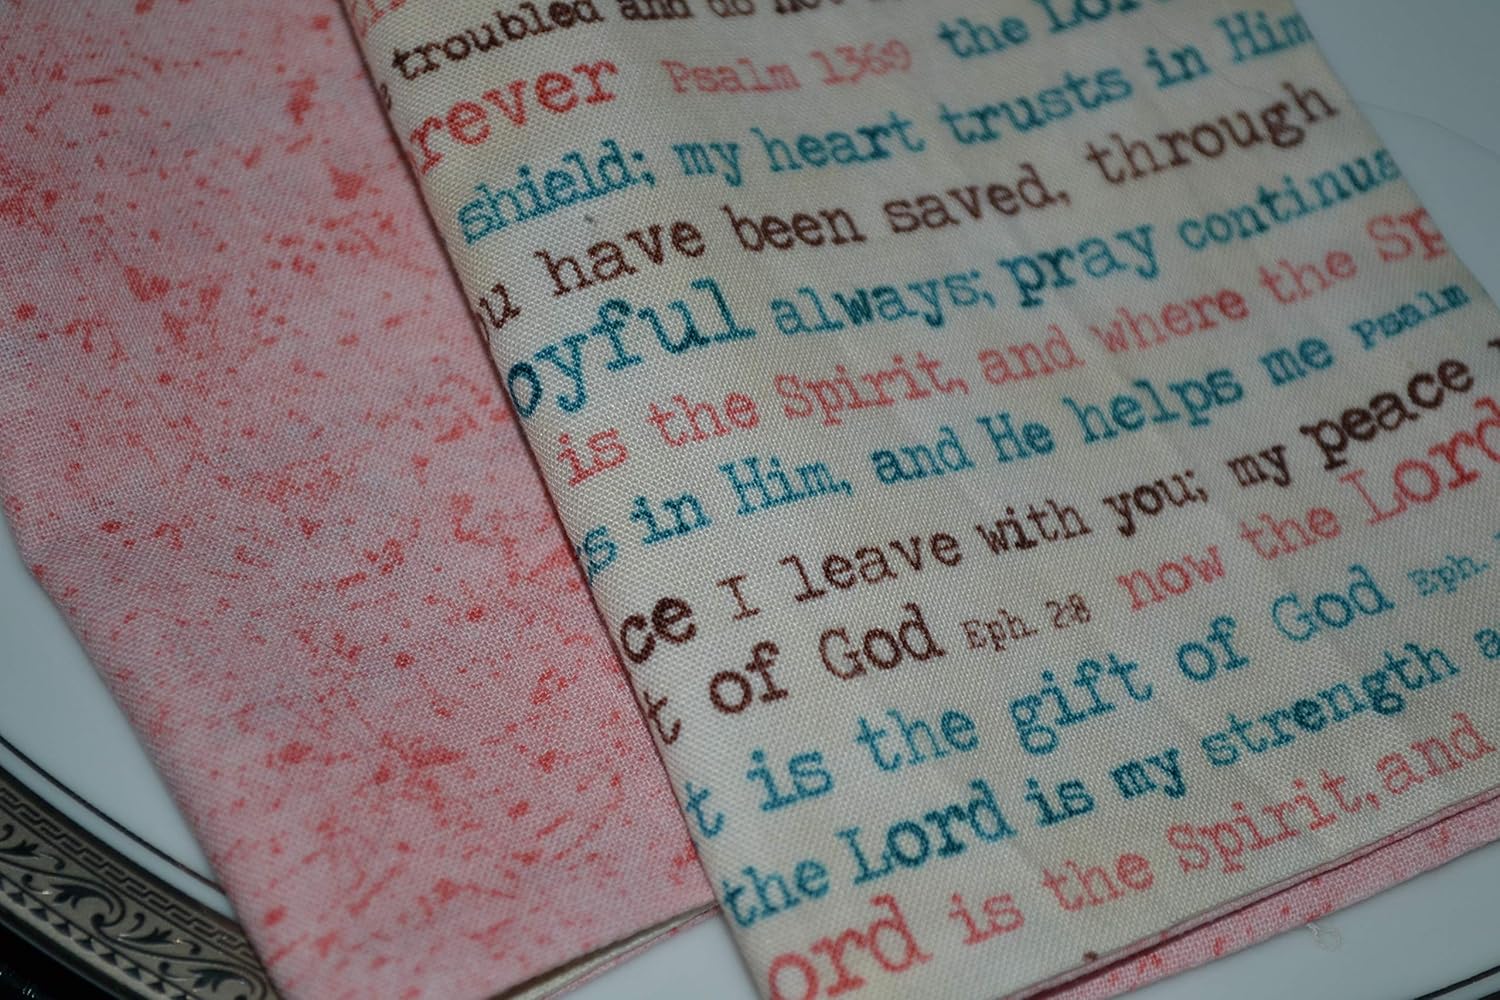 troubled and do not
rever Psalm 136:9 the Lord
shield; my heart trusts in Him
u have been saved, through
oyful always; pray continua
is the Spirit, and where the Sp
s in Him, and He helps me Psalm
ce I leave with you; my peace
t of God Eph. 2:8 now the Lord
t is the gift of God Eph.
the Lord is my strength a
ord is the Spirit, and